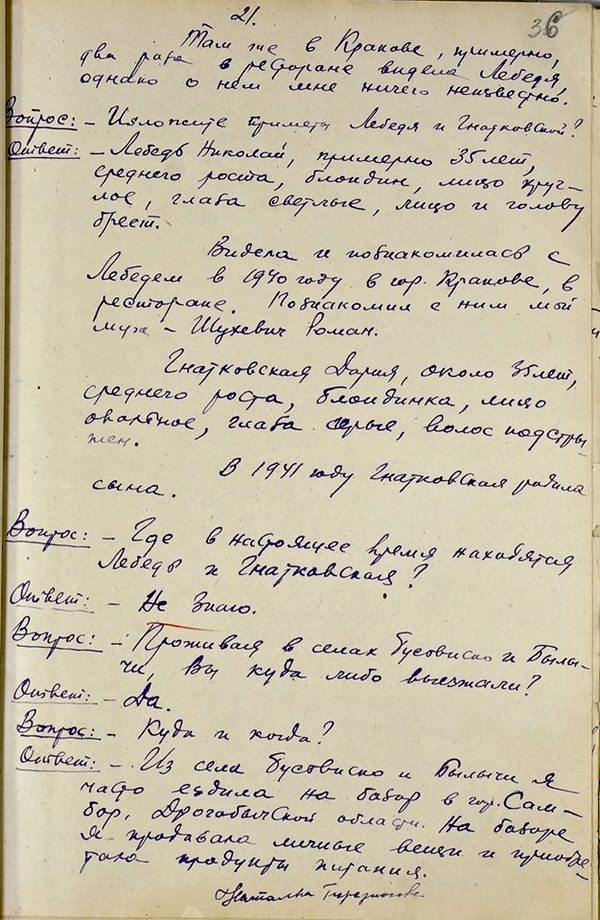 21.
36
Там же в Кракове, примерно,
два раза в ресторане видела Лебедя,
однако о нем мне ничего неизвестно.
Вопрос: – Изложите приметы Лебедя и Гнатковской?
Ответ: – Лебедь Николай, примерно 35 лет,
среднего роста, блондин, лицо круг-
лое, глаза светлые, лицо и голову
бреет.
Видела и познакомилась с
Лебедем в 1940 году в гор. Кракове, в
ресторане. Познакомил с ним мой
муж – Шухевич Роман.
Гнатковская Дария, около 35 лет,
среднего роста, блондинка, лицо
овальное, глаза серые, волос подстри
жен.
В 1941 году Гнатковская родила
сына.
Вопрос: – Где в настоящее время находятся
Лебедь и Гнатковская?
Ответ: – Не знаю.
Вопрос: – Проживая в селах Бусовиско и Былы-
чи, Вы куда либо выезжали?
Ответ: – Да.
Вопрос: – Куда и когда?
Ответ: – Из села Бусовиско и Былычи я
часто ездила на базар в гор. Сам-
бор, Дрогобычской области. На базаре
я продавала личные вещи и приобре-
тала продукты питания.